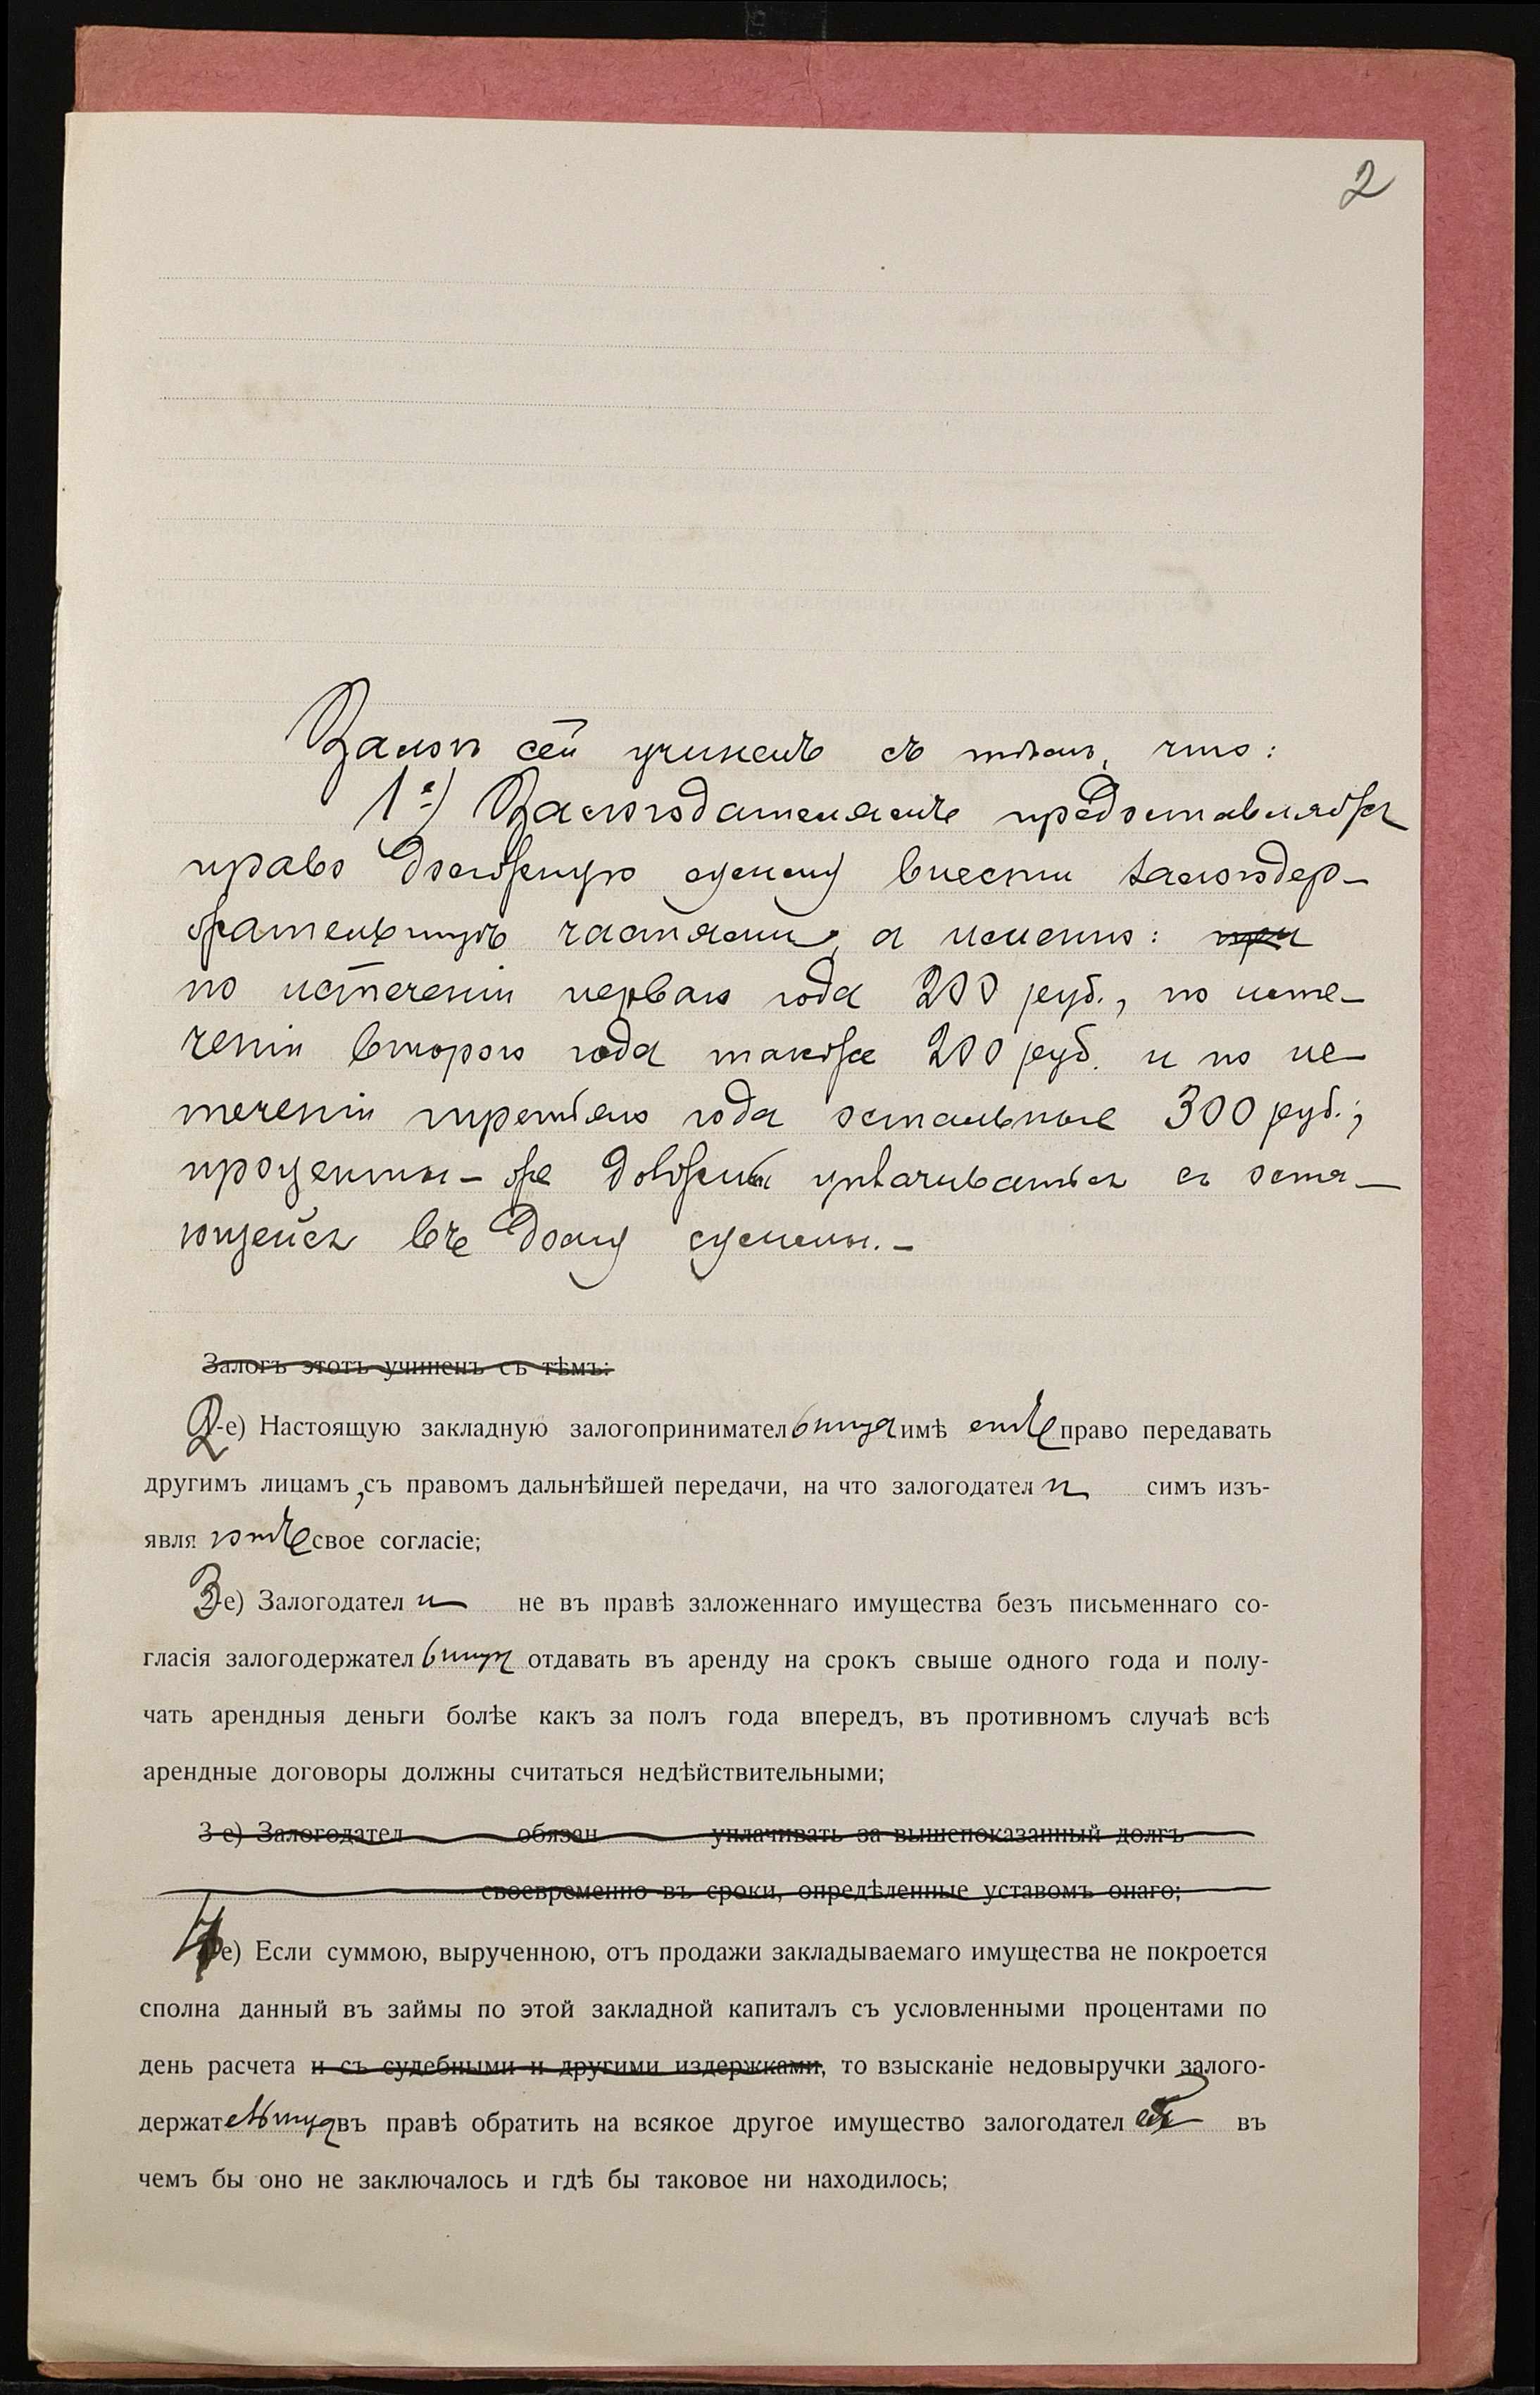 2
Залогъ сей учиненъ съ тѣмъ, что:
1-е) Залогодателямъ предоставляется
право должную сумму внести залогодер-
жательницѣ частями, а именно: при
по истеченіи перваго года 200 руб., по исте-
ченіи второго года также 200 руб. и по ис-
теченіи третьяго года остальные 300 руб.;
проценты-же должны уплачиваться съ оста-
ющейся въ долгу суммы.-
Залогъ этотъ учиненъ съ тѣмъ:
2-е) Настоящую закладную залогопринимательница имѣетъ право передавать
другимъ лицамъ, съ правомъ дальнѣйшей передачи, на что залогодатели симъ изъ-
являютъ свое согласіе;
3-е) Залогодатели не въ правѣ заложеннаго имущества безъ письменнаго со-
гласія залогодержательницы отдавать въ аренду на срокъ свыше одного года и полу-
чать арендныя деньги болѣе какъ за полъ года впередъ, въ противномъ случаѣ всѣ
арендные договоры должны считаться недѣйствительными;
3-е) Залогодател обязан уплачивать за вышепоказанный долгъ
своевременно въ сроки, опредѣленные уставомъ онаго;
4-е) Если суммою, вырученною, отъ продажи закладываемаго имущества не покроется
сполна данный въ займы по этой закладной капиталъ съ условленными процентами по
день расчета и съ судебными и другими издержками, то взысканіе недовыручки залого-
держательница въ правѣ обратить на всякое другое имущество залогодател въ
чемъ бы оно не заключалось и гдѣ бы таковое ни находилось;